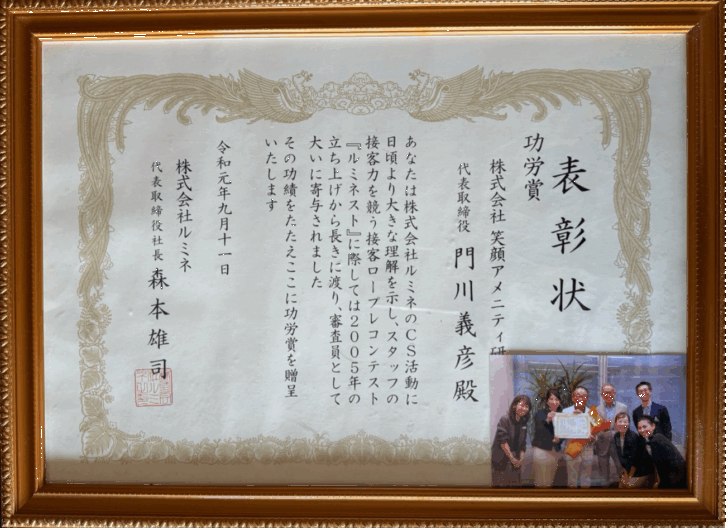 表彰状
功労賞
株式会社 笑顔アメニティ研
代表取締役 門川義彦殿
あなたは株式会社ルミネのCS活動に
日頃より大きな理解を示し、スタッフの
接客力を競う接客ロープレコンテスト
『ルミネスト』に際しては2005年の
立ち上げから長きに渡り、審査員として
大いに寄与されました
その功績をたたえここに功労賞を贈呈
いたします
令和元年九月十一日
株式会社ルミネ
代表取締役社長 森本雄司